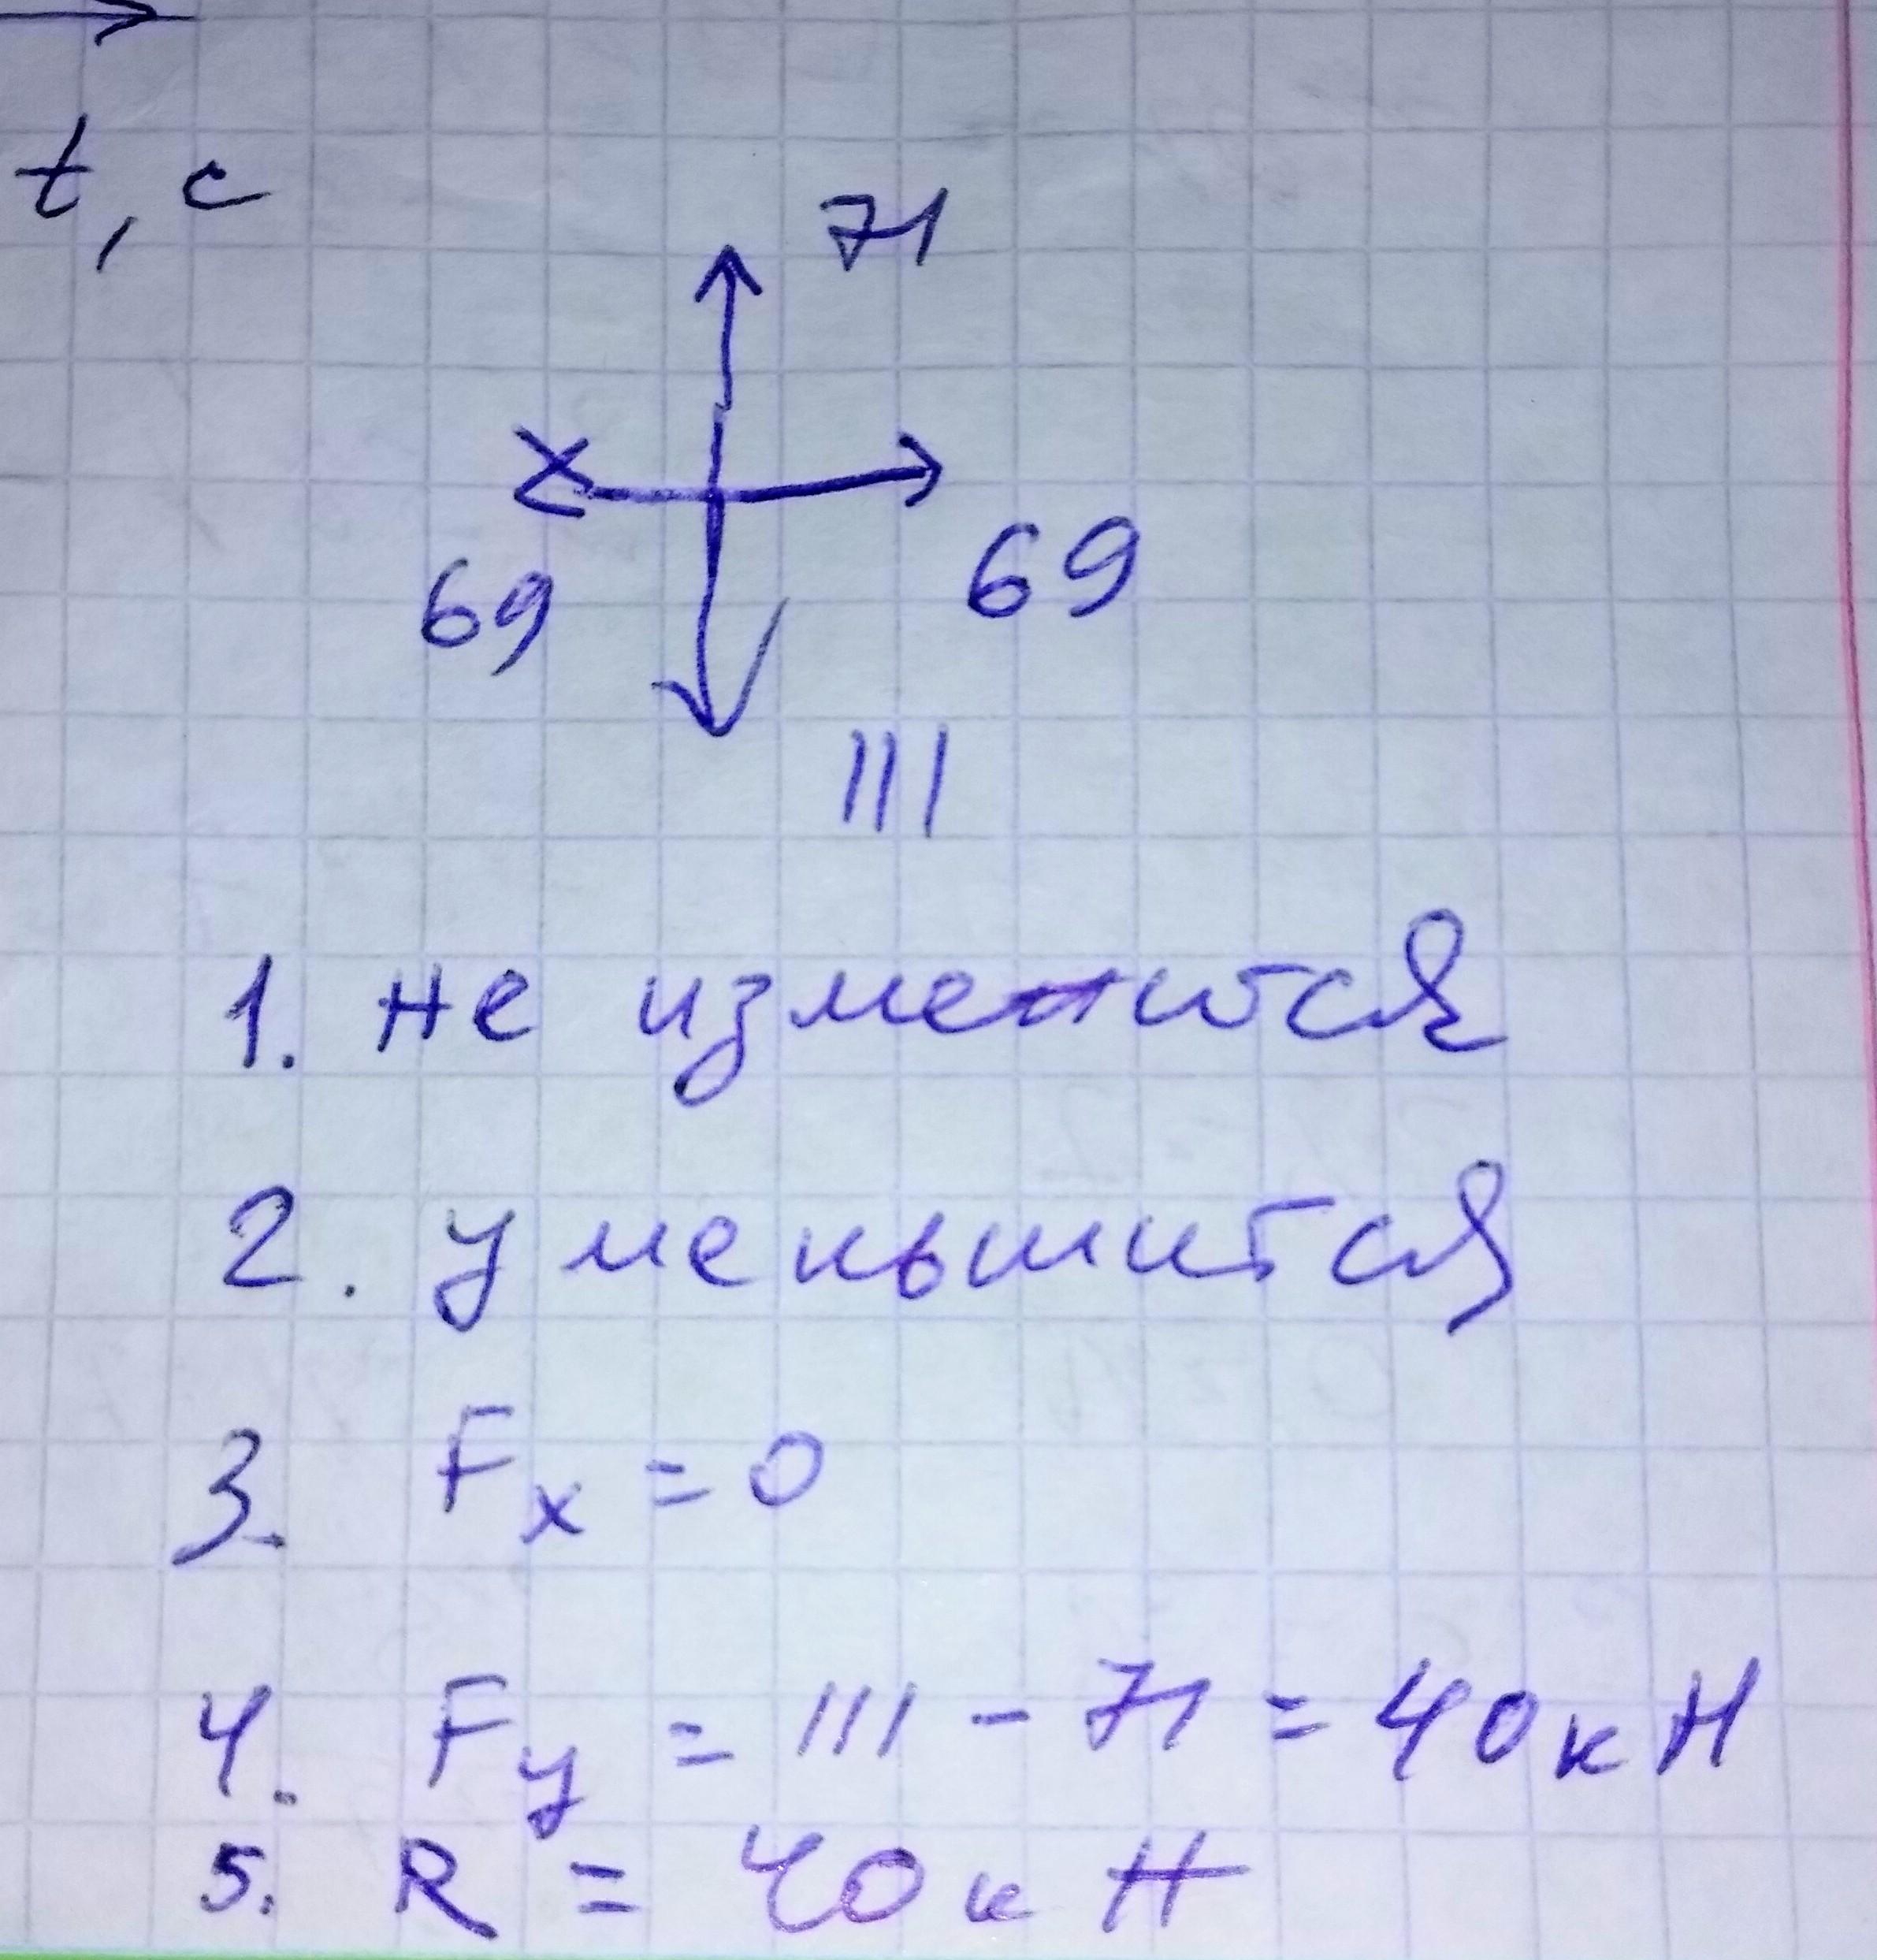 t, с
71
69
69
111
1. не изменится
2. уменьшится
3. Fx = 0
4. Fy = 111 - 71 = 40 кН
5. R = 40 кН